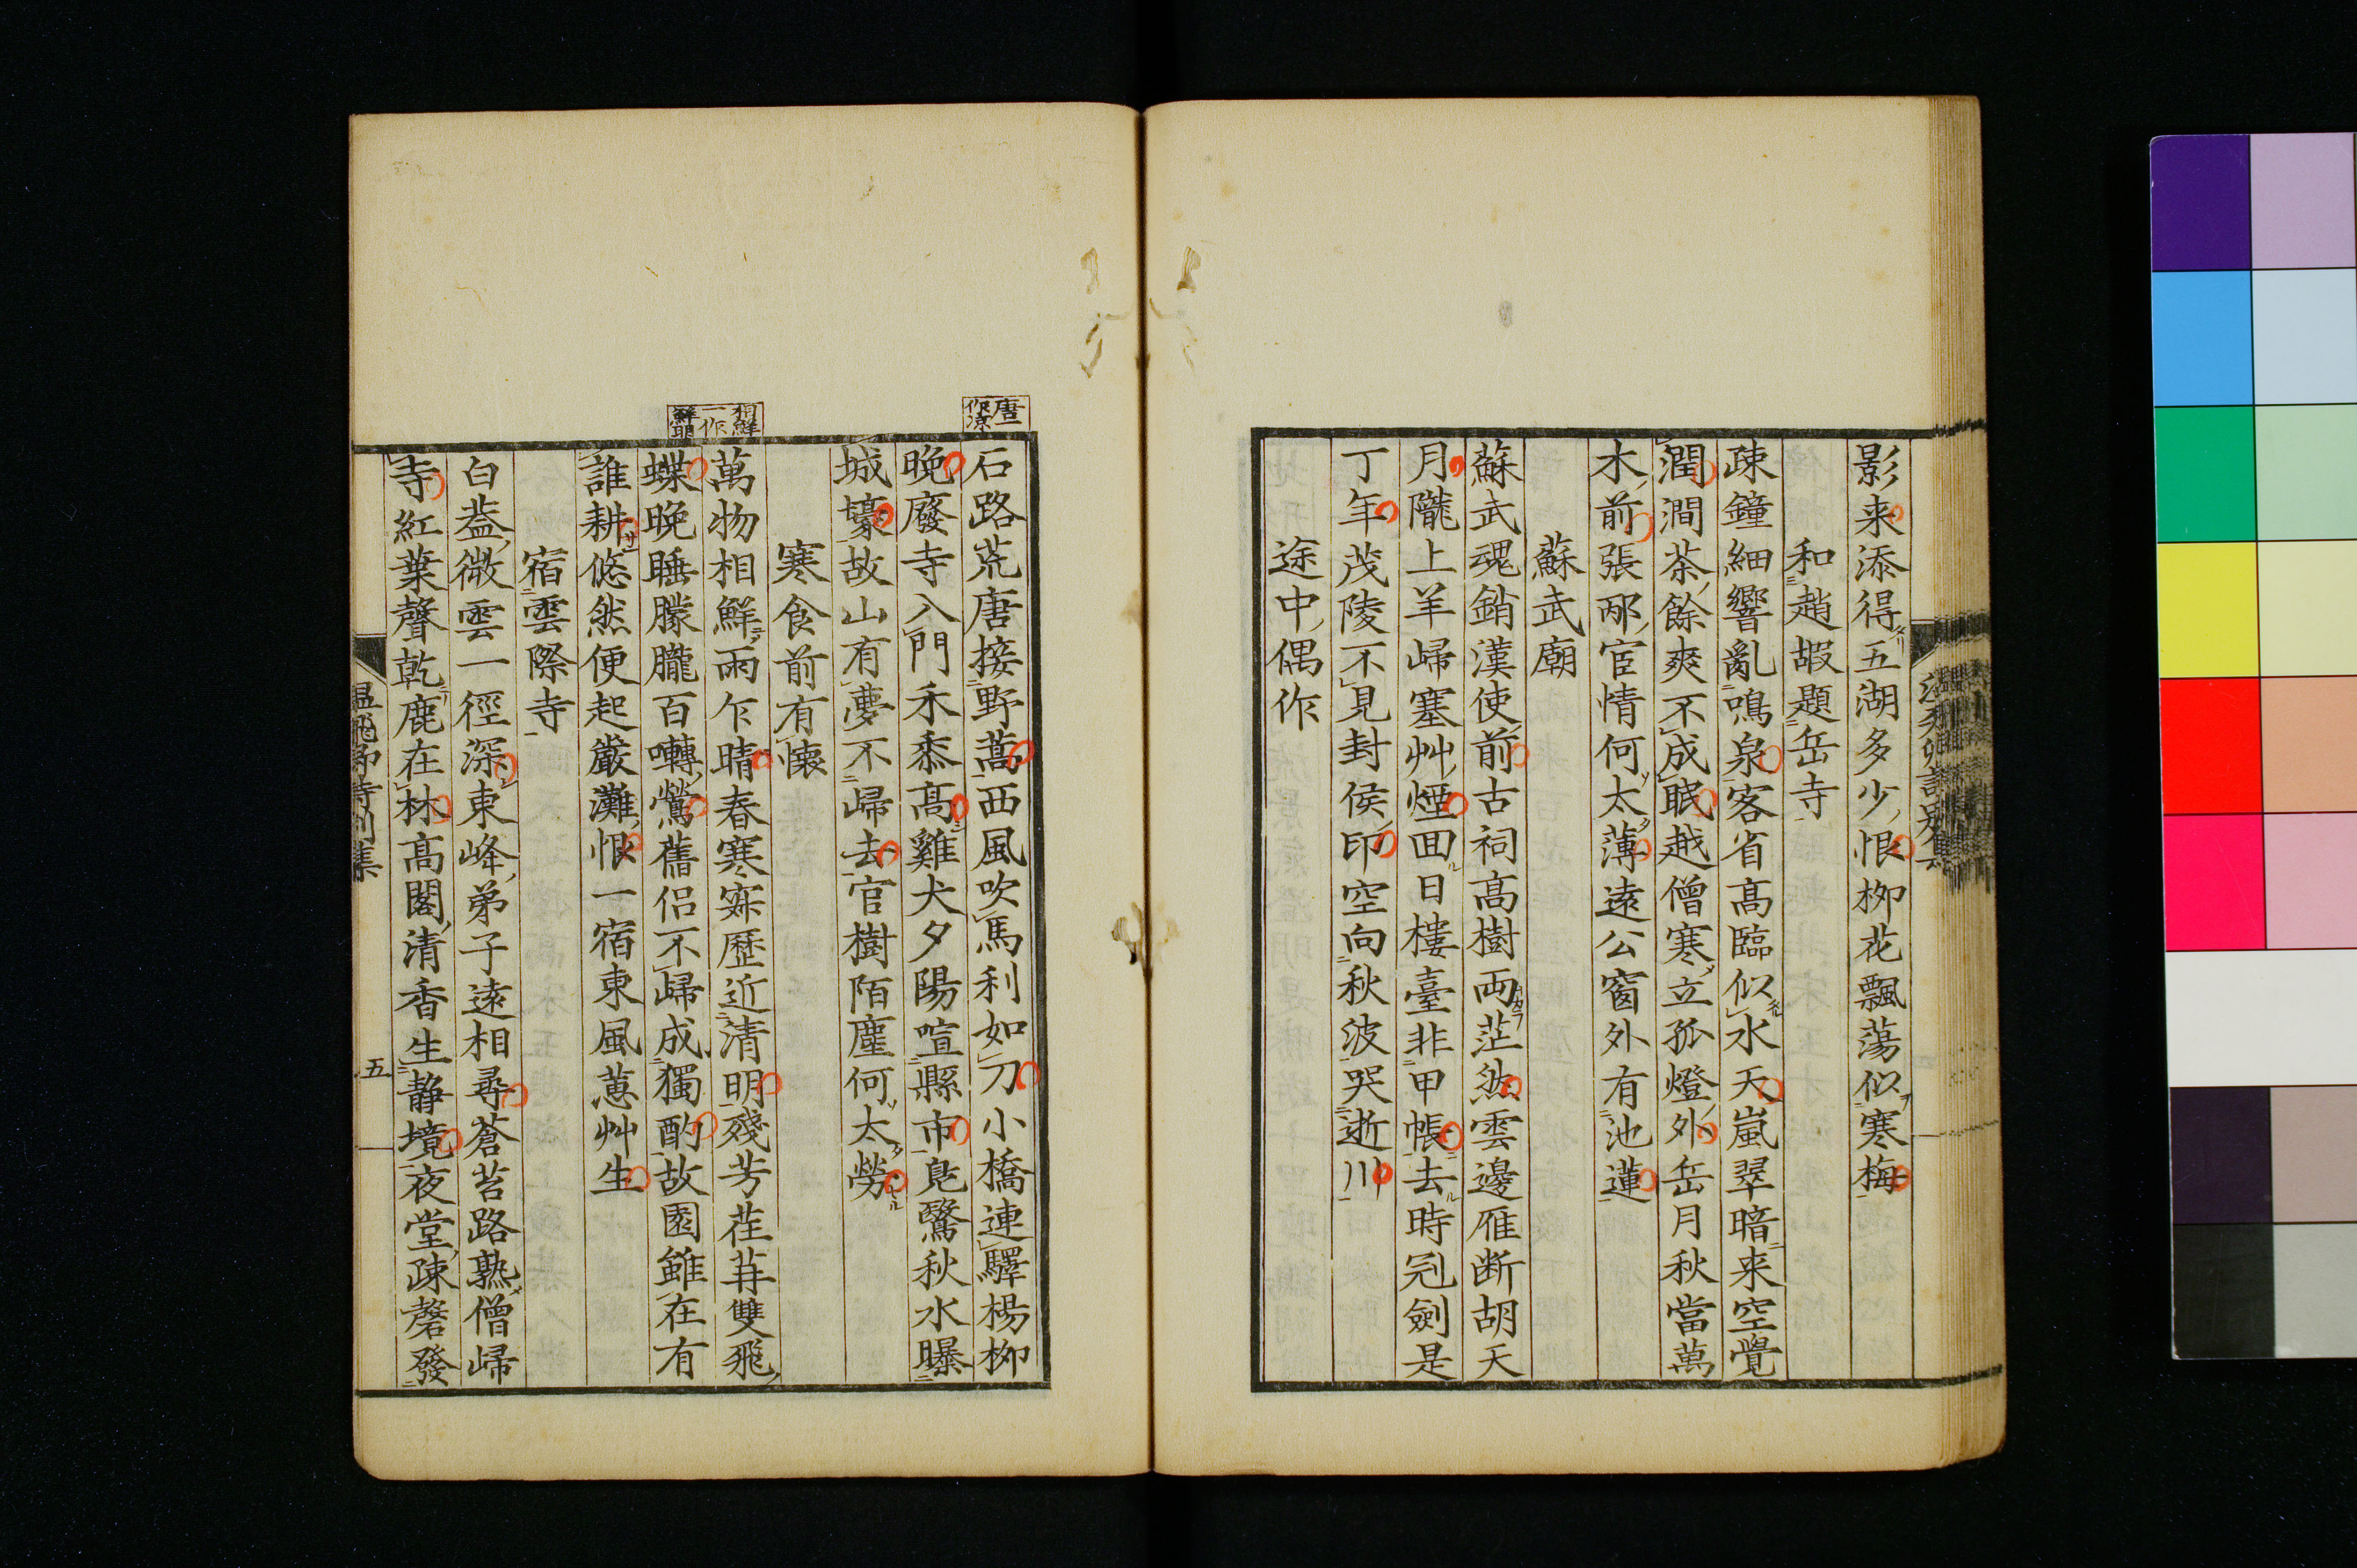 影来添得五湖多少恨柳花飄蕩似寒梅
和趙嘏題岳寺
疎鐘細響亂鳴泉客省高臨似水天嵐翠暗来空覺
潤澗茶餘爽不成眠越僧寒立孤燈外岳月秋當萬
木前張邴宦情何太薄遠公窗外有池蓮
蘇武廟
蘇武魂銷漢使前古祠高樹両茫然雲邊雁断胡天
月隴上羊歸塞艸煙回日樓臺非甲帳去時冠劍是
丁年茂陵不見封侯印空向秋波哭逝川
途中偶作
唐一
作凉
石路荒唐接野蒿西風吹馬利如刀小橋連驛楊柳
晩廢寺入門禾黍高雞犬夕陽喧縣市鳧鷖秋水曝
城壕故山有夢不歸去官樹陌塵何太勞
寒食前有懷
相鮮
一作
鮮明
萬物相鮮雨乍晴春寒寂歷近清明殘芳荏苒雙飛
蝶晩睡朦朧百囀鶯舊侶不歸成獨酌故園雖在有
誰耕悠然便起嚴灘恨一宿東風蕙艸生
宿雲際寺
白蓋微雲一徑深東峰弟子遠相尋蒼苔路熟僧歸
寺紅葉聲乾鹿在林高閣清香生静境夜堂疎磬發
温飛卿詩別集
五